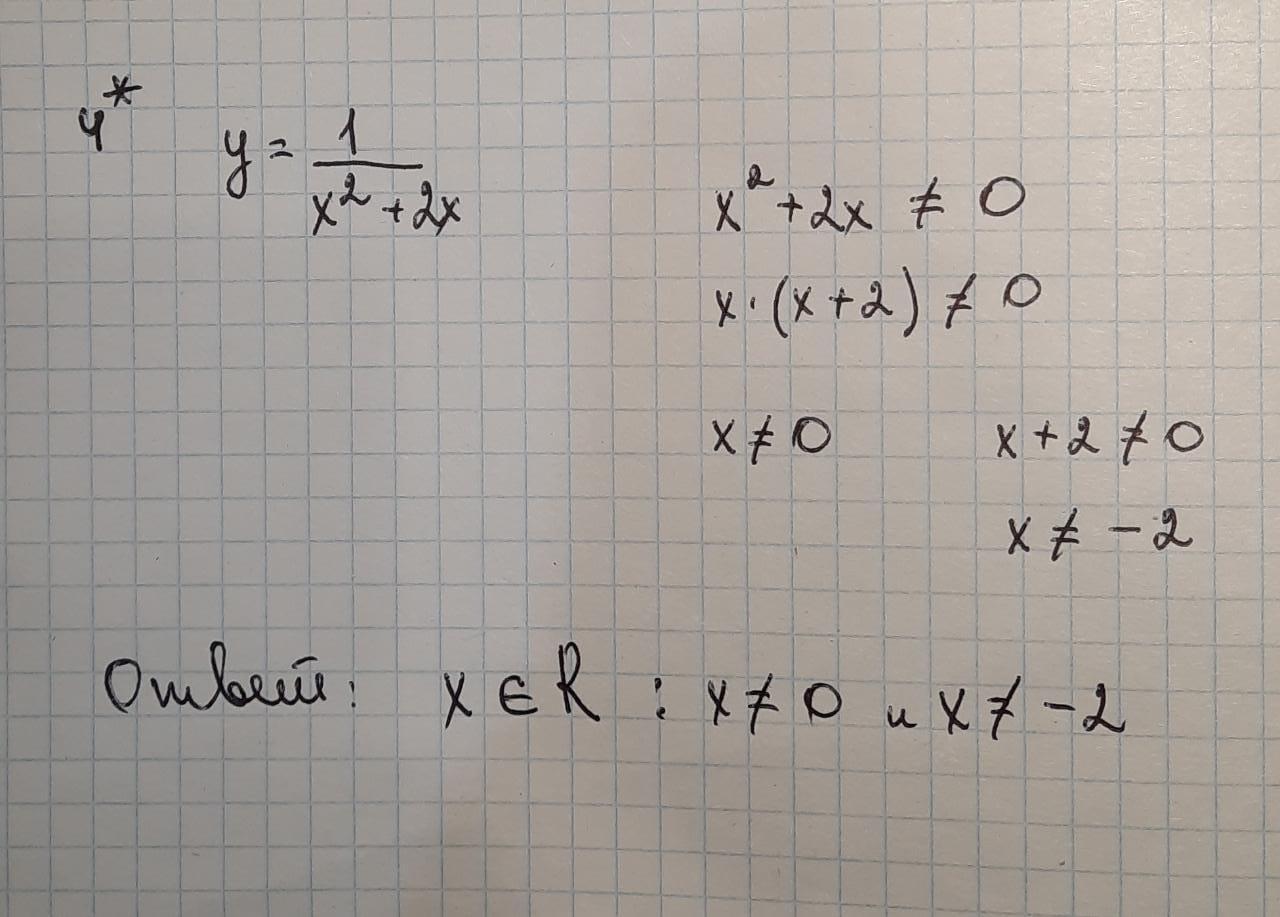 4*
y = 1/(x² + 2x)
x² + 2x ≠ 0
x · (x + 2) ≠ 0
x ≠ 0 x + 2 ≠ 0
x ≠ -2
Ответ: x ∈ R : x ≠ 0 и x ≠ -2